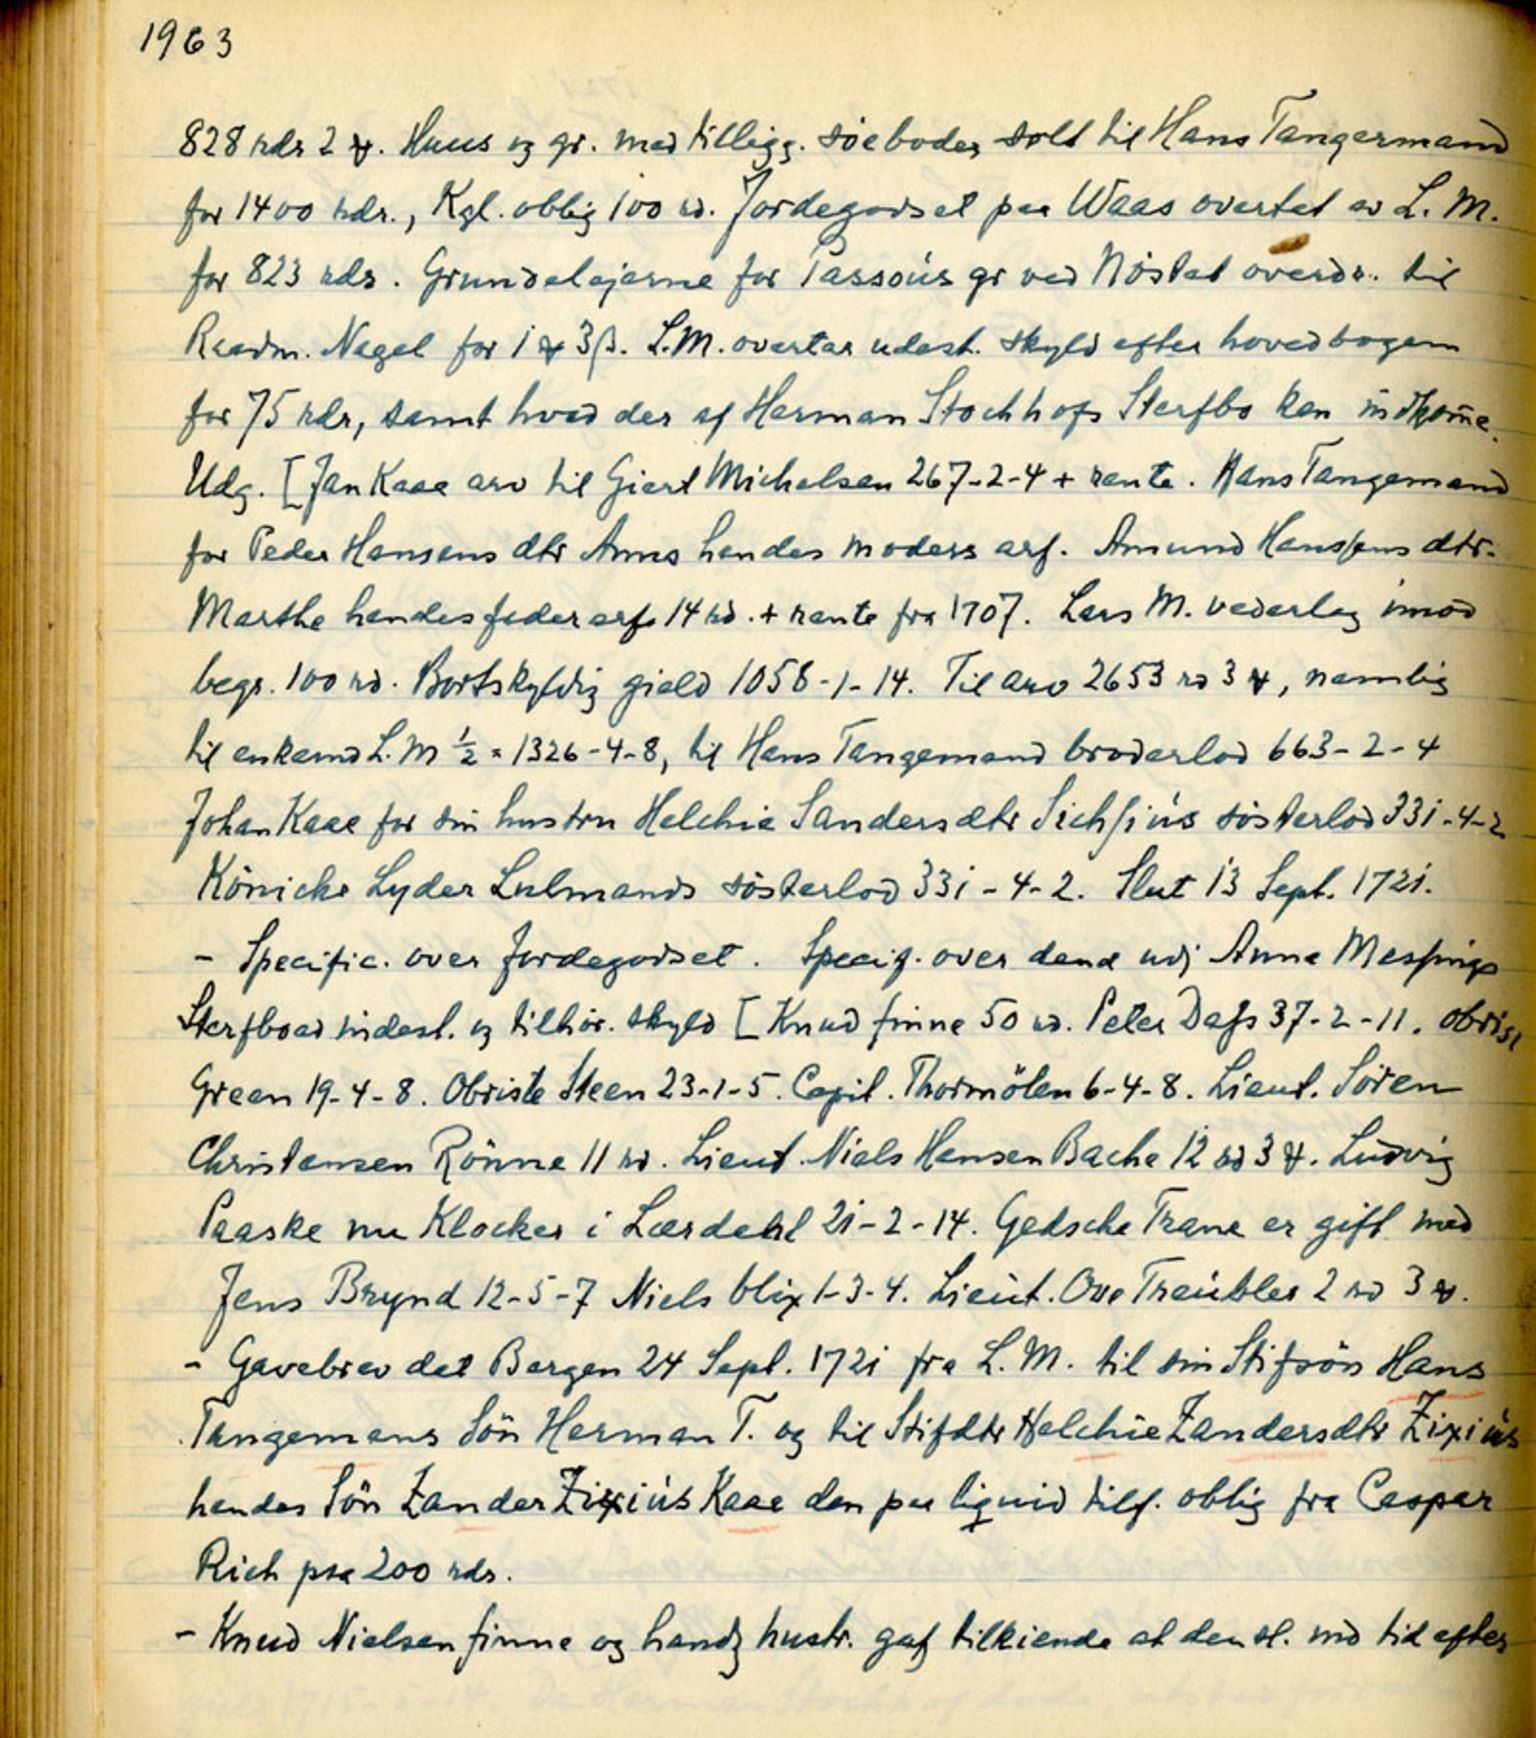 1963
828 rdr 2 . Huus og gr. med tilligg. söeboder solt til Hans Tangermand
for 1400 rdr., Kgl. oblig 100 rd. Jordegodset paa Waas overtat av L. M.
for 823 rdr. Grundelejerne for Passoús gr ved Nöstet overdr. til
Raadm. Nagel for 1 3 ß. L.M. overtar udest. skyld efter hovedbogen
for 75 rdr, samt hvad der af Herman Stochhofs Sterfbo kan indkom̄e.
Udg. [Jan Kaae arv til Giert Michelsen 267-2-4 + rente. Hans Tangemand
for Peder Hansens dtr Anna hendes moders arf. Amund Hanssens dtr.
Marthe hendes feder arf 14 rd. + rente fra 1707. Lars M. vederlag imod
begr. 100 rd. Bortskyldig gield 1058-1-14. Til arv 2653 rd 3 , nemlig
til enkemd L.M ½ = 1326-4-8, til Hans Tangemand broderlod 663-2-4
Johan Kaae for sin hustru Helchie Sandersdtr Sichsiús sösterlod 331-4-2
Könicke Lyder Lulmands sösterlod 331-4-2. Slut 13 Sept. 1721.
- Specific. over Jordegodset. Specif. over dend udj Anne Messings
Sterfboed indest. og tilhör. skyld [Knud finne 50 rd. Peter Dass 37-2-11. obrist
Green 19-4-8. Obriste Steen 23-1-5. Capit. Thormölen 6-4-8. Lieut. Sören
Christensen Rönne 11 rd. Lieut. Niels Hansen Bache 12 rd 3 . Ludvig
Paaske nu Klocker i Lærdahl 21-2-14. Gedsche Trane er gift med
Jens Brynd 12-5-7 Niels blix 1-3-4. Lieut. Ove Treúbler 2 rd 3 .
- Gavebrev dat Bergen 24 Sept. 1721 fra L. M. til sin Stifsön Hans
Tangemans Sön Herman T. og til Stifdtr Helchie Zandersdtr Zixiús
hendes Sön Zander Zixiús Kaae den paa liqvid tilf. oblig fra Caspar
Rich paa 200 rdr.
- Knud Nielsen finne og hands hustr. gaf tilkiende at den sl. md tid efter